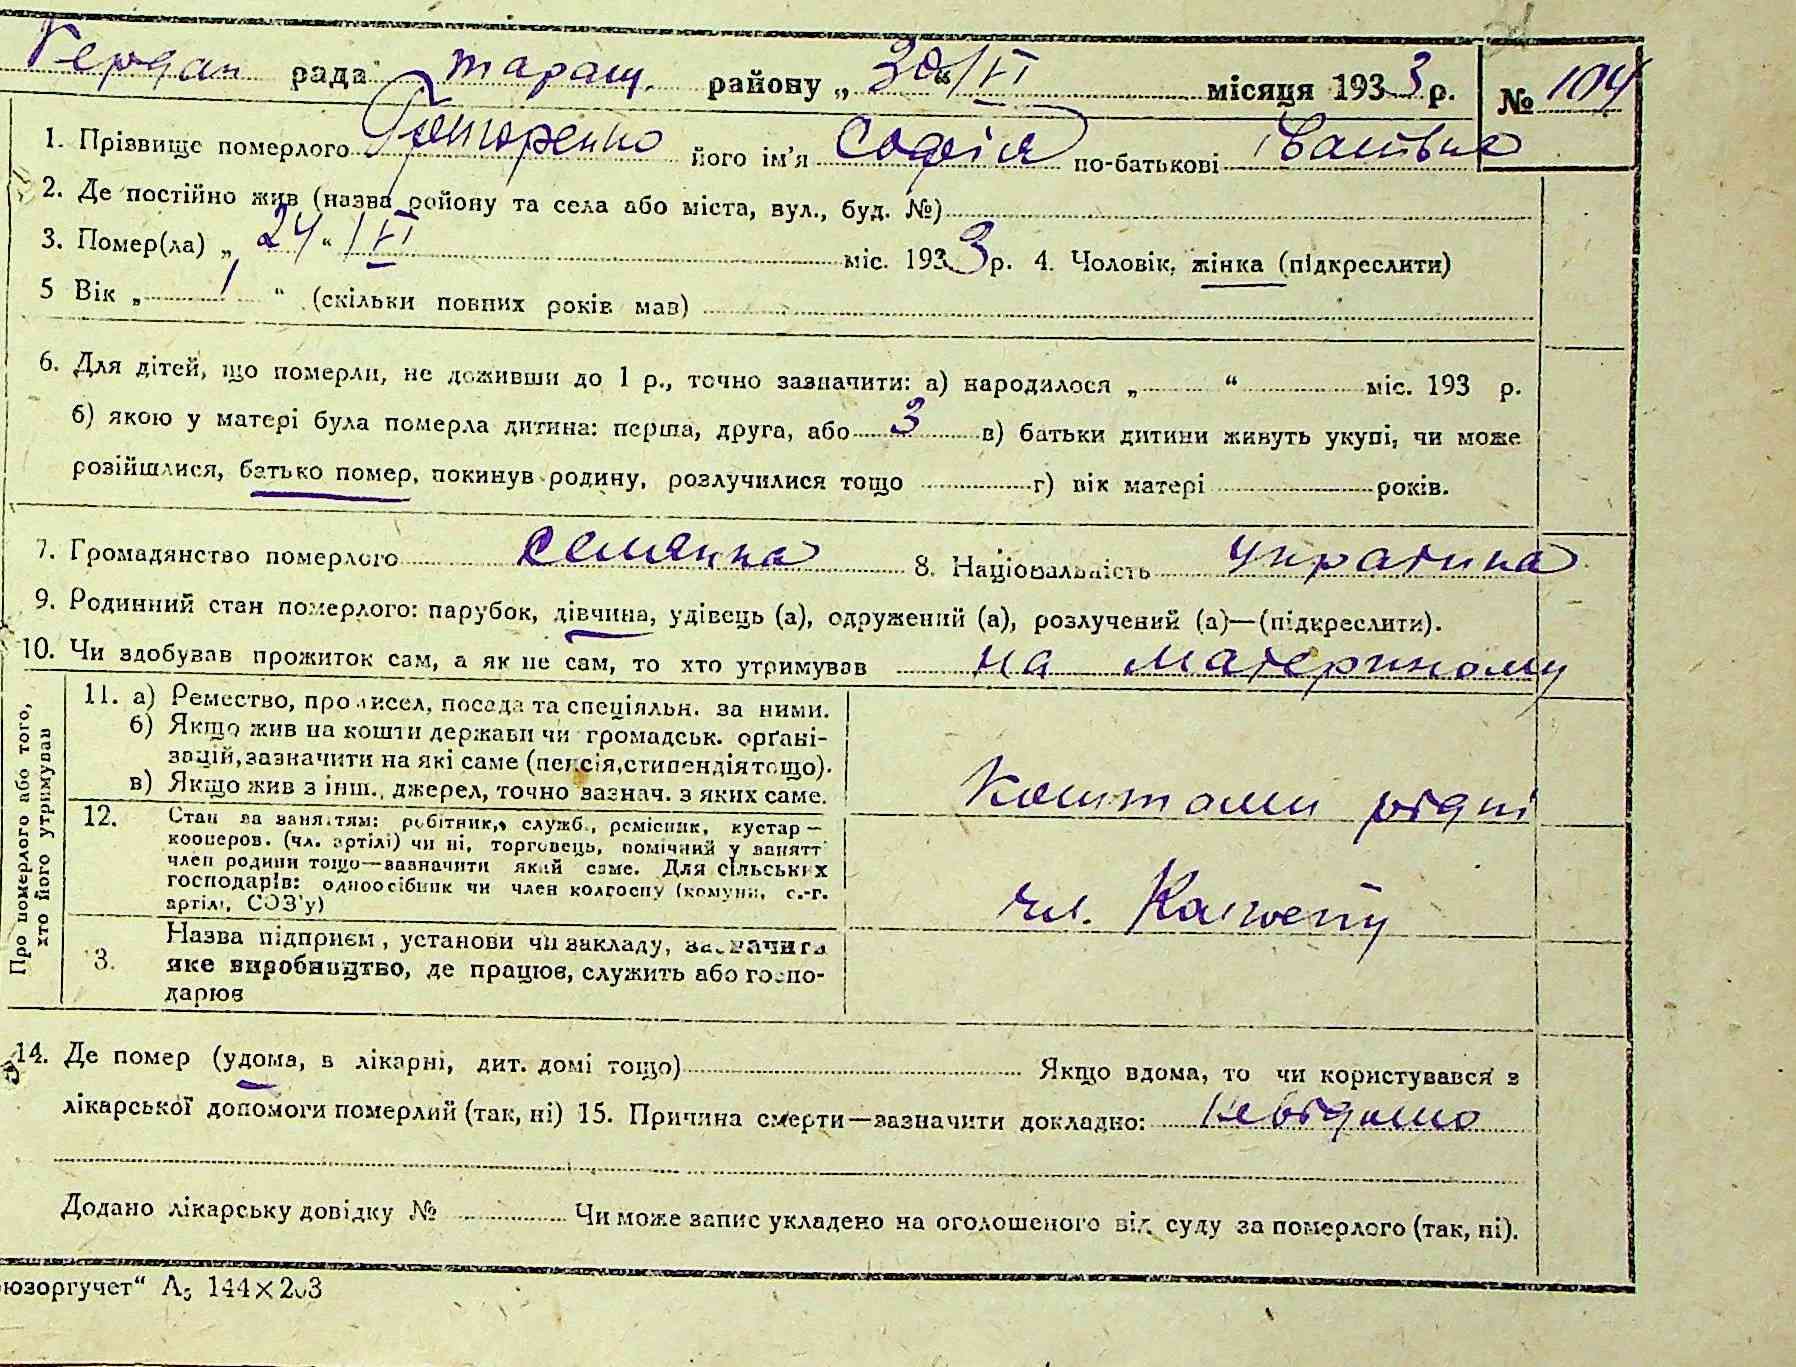 Кердан рада Таращ. району „30“/VI місяця 1933 р. № 104
1. Прізвище померлого Гончаренко його ім'я Софія по-батькові
2. Де постійно жив (назва району та села або міста, вул., буд. №)
3. Помер(ла) „24“ /VI міс. 1933 р. 4. Чоловік, жінка (підкреслити)
5 Вік „ 1 “ (скільки повних років мав)
6. Для дітей, що померли, не доживши до 1 р., точно зазначити: а) народилося „ “ міс. 193 р.
б) якою у матері була померла дитина: перша, друга, або 3 в) батьки дитини живуть укупі, чи може
розійшлися, батько помер, покинув родину, розлучилися тощо г) вік матері років.
7. Громадянство померлого селянка 8. Національність украінка
9. Родинний стан померлого: парубок, дівчина, удівець (а), одружений (а), розлучений (а)—(підкреслити).
10. Чи здобував прожиток сам, а як не сам, то хто утримував на материному
Про померлого або того, хто його утримував
11. а) Ремество, промисел, посада та спеціяльн. за ними.
б) Якщо жив на кошти держави чи громадськ. орґані-
зацій, зазначити на які саме (пенсія, стипендія тощо).
в) Якщо жив з інш., джерел, точно зазнач. з яких саме.
Коштами рідні
12. Стан за заняттям: робітник, служб., ремісник, кустар—
кооперов. (чл. артілі) чи ні, торговець, помічний у занятт
член родини тощо—зазначити який саме. Для сільських
господарів: одноосібник чи член колгоспу (комуни, с.-г.
артілі, СОЗ'у)
чл.
3. Назва підприєм, установи чи закладу, зазначити
яке виробництво, де працює, служить або госпо-
дарює
14. Де помер (удома, в лікарні, дит. домі тощо) Якщо вдома, то чи користувався з
лікарської допомоги померлий (так, ні) 15. Причина смерти—зазначити докладно: невідомо
Додано лікарську довідку № Чи може запис укладено на оголошеного від суду за померлого (так, ні).
юзоргучет“ А5 144×203